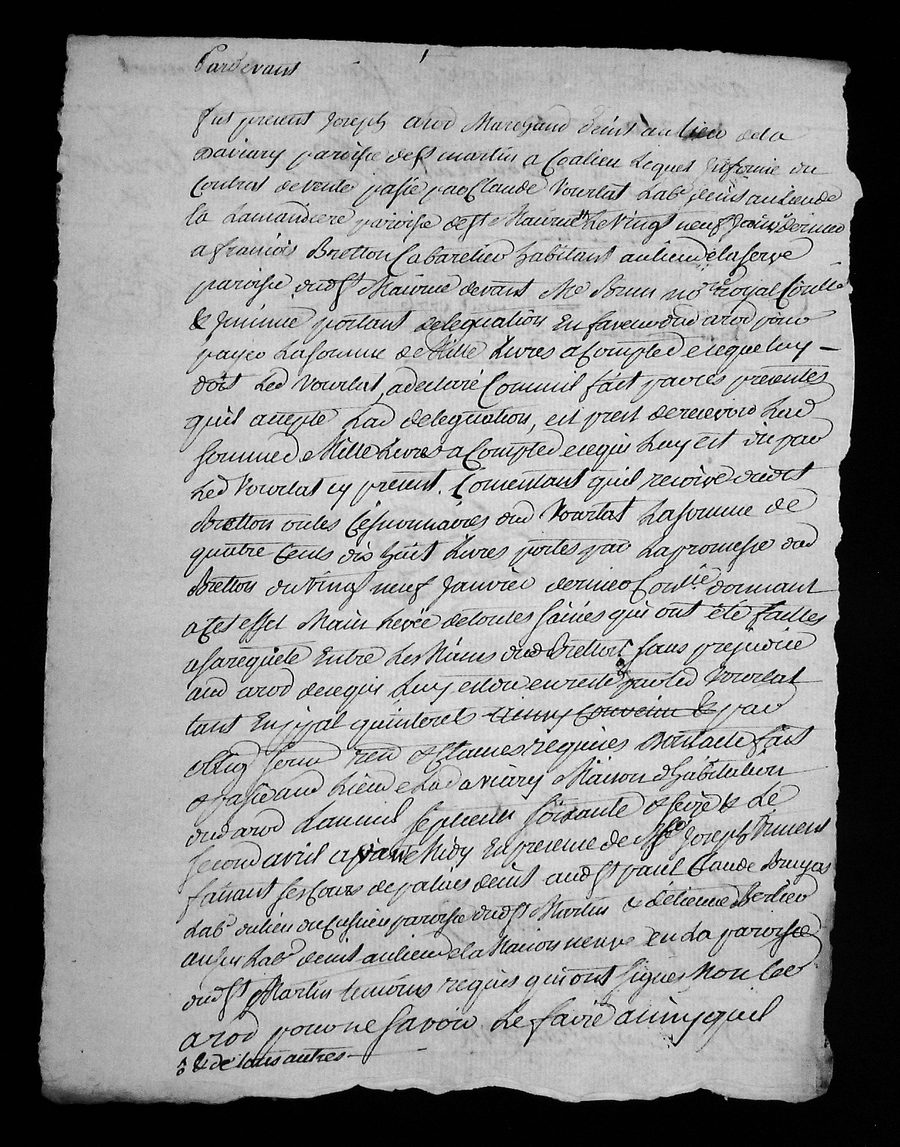 Pardevant
fut present Joseph arod Marchand deint au lieu dela
Daviary paroisse de st martin a Coalieu Lequel Informé du
Contrat de vente passé par Claude Vourlat Lab.r deint au lieu de
la Lamandiere paroisse de st Maurice Le Vingt neuf Janv.r dernier
a francois Bretton Cabaretier habitant au lieu de laserve
paroisse dud st Maurice devant Me no.re Royal
& portant delegation En faveur dud arod pour
payer La somme de Mille Livres a Compte de ce que luy
doit Led Vourlat, a declaré Comm'il fait par ces presentes
quil accepte Lad delegation, est prest de recevoir Lad
somme de Mille Livres a Compte de ce qui Luy est du par
Led Vourlat cy present. Consentant quil reçoive dudit
Bretton ou les Cessionnaires dud Vourlat La somme de
quatre Cents dix huit Livres portés par La promesse dud
Bretton du Vingt neuf Janvier dernier donnant
a Cet effet Main Levée de toutes saisies qui ont été faittes
a sa requete Entre Les Mains dud Bretton sans prejudice
aud arod de ce qui Luy est du en reste par Led Vourlat
tant En p.pal qu'interets par
oblig soum ren & Clauses requises Dont acte fait
& passé aud Lieu de Lad aviary Maison d'habitation
dud arod Lan mil sept cents soixante & seize & Le
second avril apres Midy En presence de Sr Joseph Vincent
faisant ses Cours de deint aud st paul Claude Bruyas
Lab.r du lieu du paroisse dud st Martin & d'etienne Berlier
aussy Lab.r deint au lieu de la Maison neuve en la paroisse
dud st Martin temoins requis qui ont signés Non led
arod pour ne savoir Le faire ainsy quil
& de tous autres